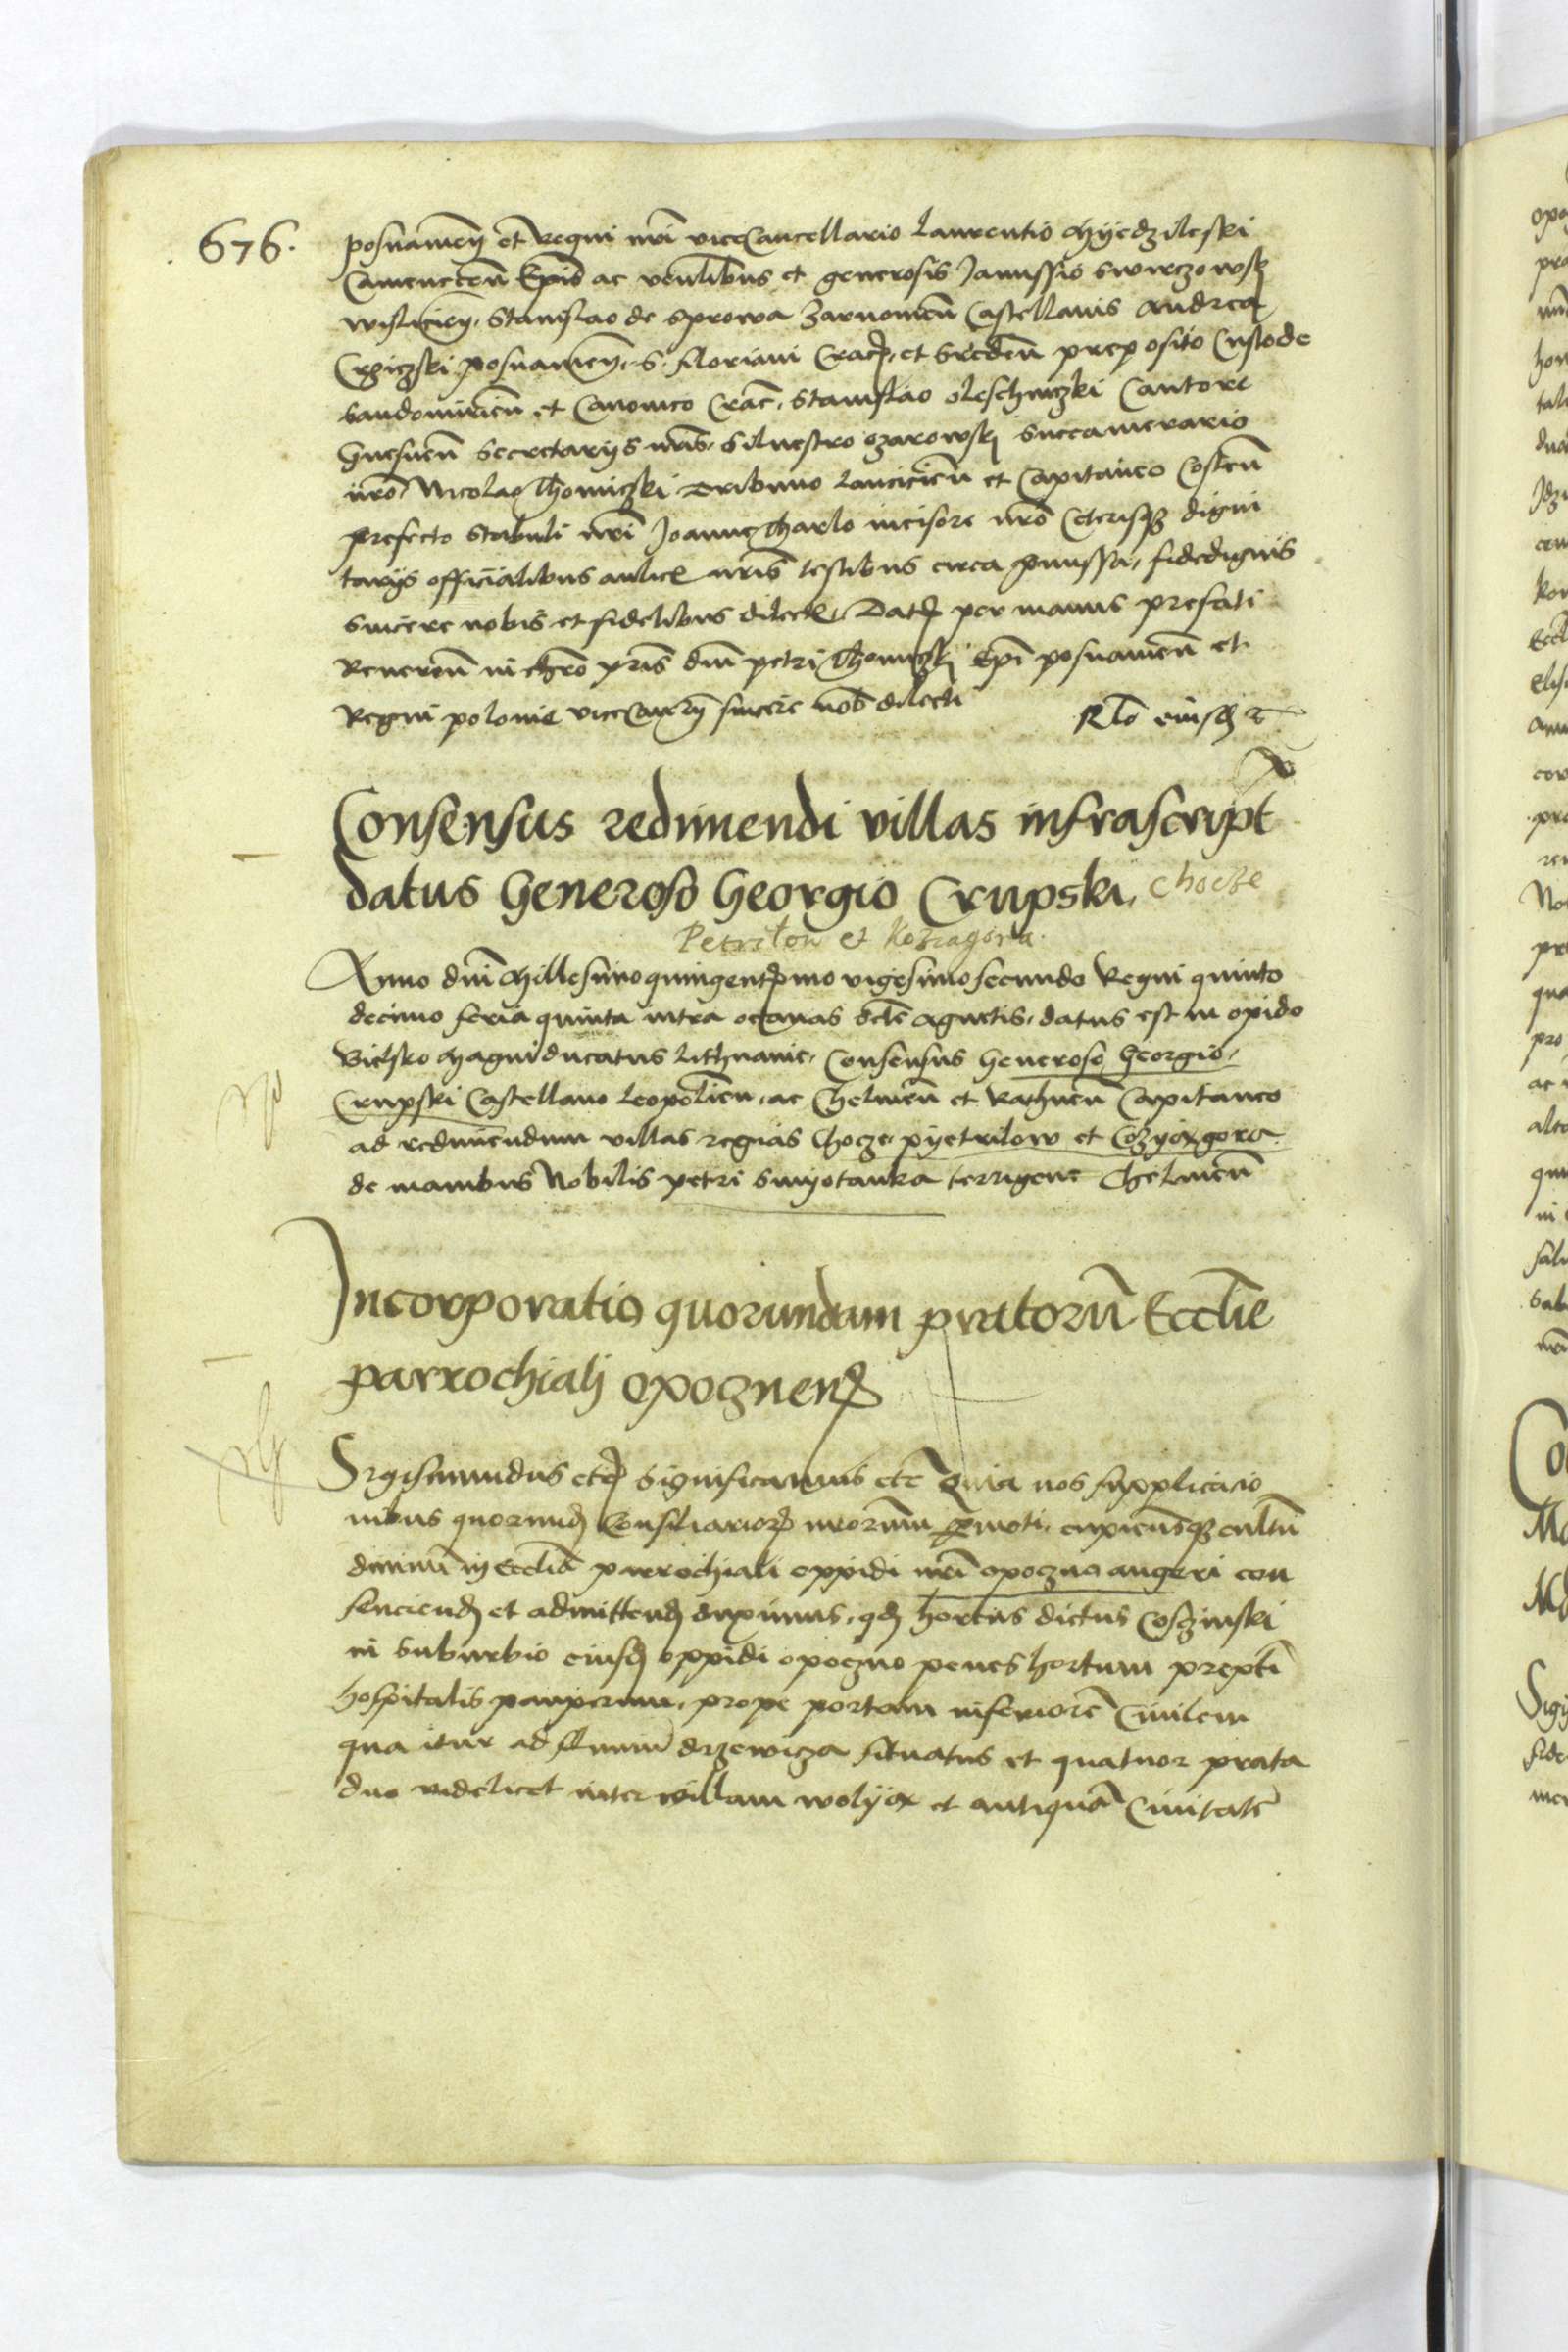 676.
posnamen et Regni nri viceCancellario Laurentio Myedzileski
Camenecen Epis ac venlibus et generosis Janussio Swyrczowskj
wislicien, Stanislao de Sprowa Zarnowien Castellanis Andrea
Crziczki posnamen, S. floriani Crac, et Sreden preposito Custode
Sandomirien et Canonico Crac, Stanislao oleschniczki Cantore
Gnesnen Secretarijs nris, Siluestro ozarowskj Succamerario
nro, Nicolao Thomiczki Tribuno Lancicien et Capitaneo Costen
prefecto Stabuli nri Joanne Tharlo incisore nro Ceterisq digni
tarijs officialibus aulicis nris testibus circa premissa, fidedignis
sincere nobis et fidelibus dilectis, Dat per manus prefati
Reveren in chro pris dni petri Thomiczkj Epi posnamen et
Regni polonie viceCanrij sincere nob dilecti
Rlo eiusd
Consensus redimendi villas infrascript
datus Generoso Georgio Crupski, Chocze
Petrilow et Kozagora.
Anno dni Millesimoquingentmo vigesimosecundo Regni quinto
decimo feria quinta intra octauas scte Agnetis, datus est in opido
Bielsko Magni ducatus Lithuanie, Consensus Generoso Georgio,
Crupski Castellano Leopolien, ac Chelmen et Rathnen Capitaneo
ad redimendum villas regias Chocze, pyetrilow et Cozyagora
de manibus Nobilis petri Smyotanka terrigene Chelmen
Incorporatio quorundam pratoru Ecclie
parrochialj opocznen
Sigismundus etc Significamus etc Quia nos supplicacio
nibus quorund Consiliarior nrorum pmoti, cupientesq cultu
diuinu in Ecclia parrochiali oppidi nri opoczno augeri con
senciend et admittend duximus, qd hortus dictus Coszinski
in suburbio eiusd oppidi opoczno penes hortum prepti
hospitalis pauperum, prope portam inferiore Ciuilem
qua itur ad fluuiu drzewicza situatus et quatuor prata
duo videlicet inter villam wolya et antiqua Ciuitate